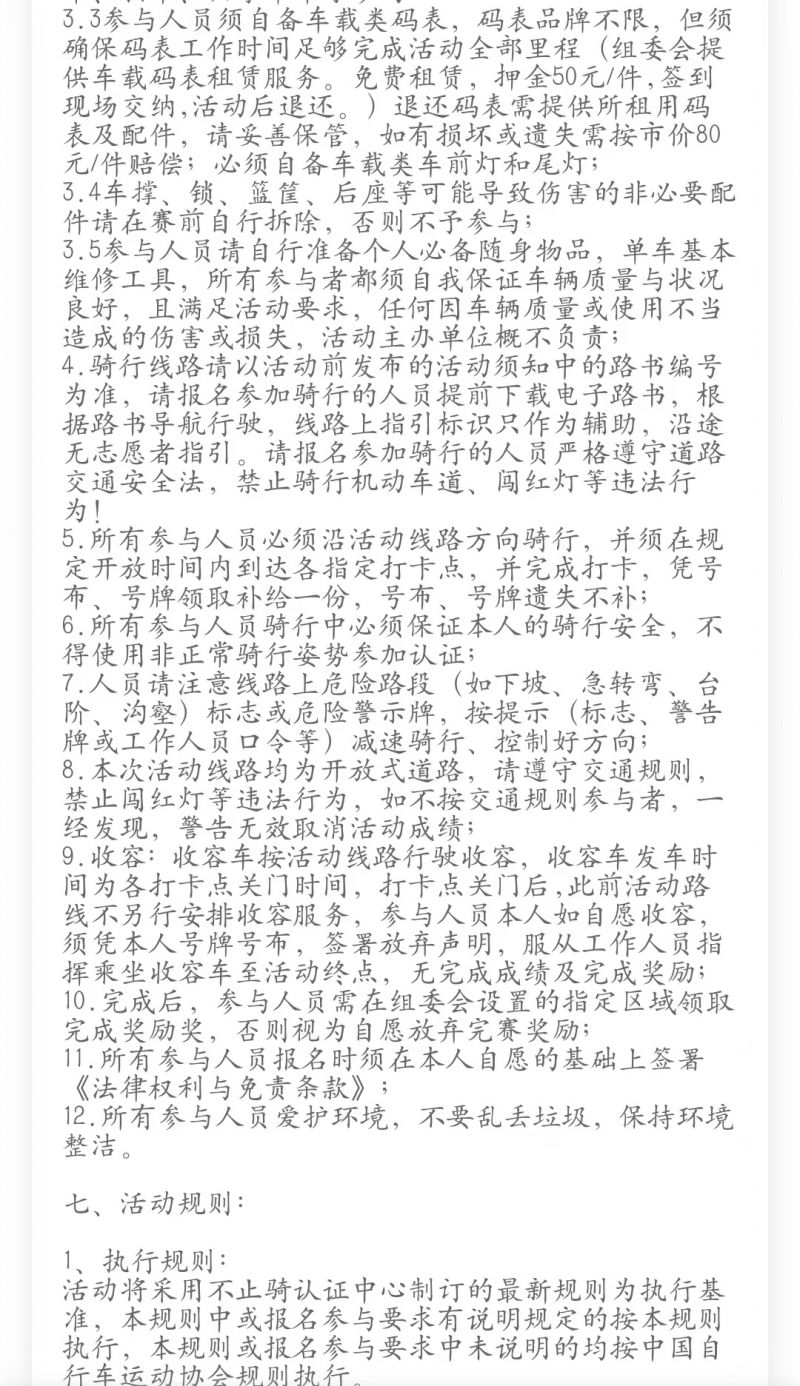 3.3参与人员须自备车载类码表，码表品牌不限，但须
确保码表工作时间足够完成活动全部里程（组委会提
供车载码表租赁服务。免费租赁，押金50元/件,签到
现场交纳,活动后退还。）退还码表需提供所租用码
表及配件，请妥善保管，如有损坏或遗失需按市价80
元/件赔偿；必须自备车载类车前灯和尾灯；
3.4车撑、锁、篮筐、后座等可能导致伤害的非必要配
件请在赛前自行拆除，否则不予参与；
3.5参与人员请自行准备个人必备随身物品，单车基本
维修工具，所有参与者都须自我保证车辆质量与状况
良好，且满足活动要求，任何因车辆质量或使用不当
造成的伤害或损失，活动主办单位概不负责；
4.骑行线路请以活动前发布的活动须知中的路书编号
为准，请报名参加骑行的人员提前下载电子路书，根
据路书导航行驶，线路上指引标识只作为辅助，沿途
无志愿者指引。请报名参加骑行的人员严格遵守道路
交通安全法，禁止骑行机动车道、闯红灯等违法行
为！
5.所有参与人员必须沿活动线路方向骑行，并须在规
定开放时间内到达各指定打卡点，并完成打卡，凭号
布、号牌领取补给一份，号布、号牌遗失不补；
6.所有参与人员骑行中必须保证本人的骑行安全，不
得使用非正常骑行姿势参加认证；
7.人员请注意线路上危险路段（如下坡、急转弯、台
阶、沟壑）标志或危险警示牌，按提示（标志、警告
牌或工作人员口令等）减速骑行、控制好方向；
8.本次活动线路均为开放式道路，请遵守交通规则，
禁止闯红灯等违法行为，如不按交通规则参与者，一
经发现，警告无效取消活动成绩；
9.收容：收容车按活动线路行驶收容，收容车发车时
间为各打卡点关门时间，打卡点关门后,此前活动路
线不另行安排收容服务，参与人员本人如自愿收容，
须凭本人号牌号布，签署放弃声明，服从工作人员指
挥乘坐收容车至活动终点，无完成成绩及完成奖励；
10.完成后，参与人员需在组委会设置的指定区域领取
完成奖励奖，否则视为自愿放弃完赛奖励；
11.所有参与人员报名时须在本人自愿的基础上签署
《法律权利与免责条款》；
12.所有参与人员爱护环境，不要乱丢垃圾，保持环境
整洁。
七、活动规则：
1、执行规则：
活动将采用不止骑认证中心制订的最新规则为执行基
准，本规则中或报名参与要求有说明规定的按本规则
执行，本规则或报名参与要求中未说明的均按中国自
行车运动协会规则执行。